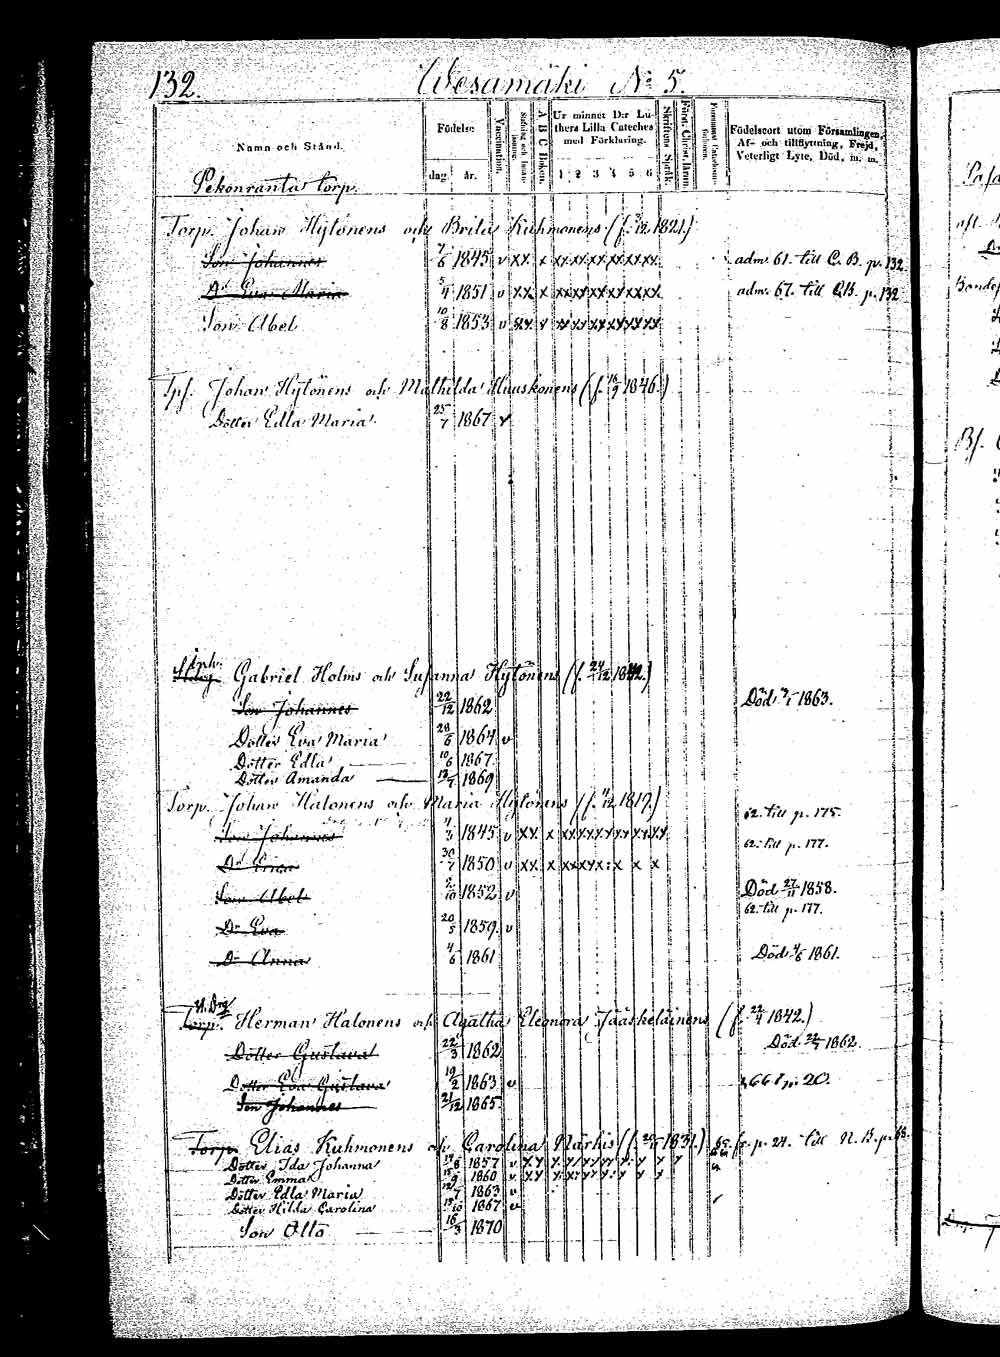 132. Wesamäki No 5.
Namn och Stånd. Födelse dag. år. Vaccination. A B C Boken. Ur minnet D:r Luthers Lilla Cateches med Förklaring. 1 2 3 4 5 6 Skriftens Språk. Födelseort utom Församlingen, Af- och tillflyttning, Frejd, Veterligt Lyte, Död, m. m.
Pekonranta torp.
Torp. Johan Hytönens och Brita Kuhmonens (f. 3/12 1821.)
Son Johannes 7/6 1845 v xx x xx xx xx xx xx xx adm. 61. till C. B. p. 132
Dr Eva Maria 5/4 1851 v xx x xx xx xx xx xx xx adm. 67. till C.B. p. 132
Son Abel 10/8 1853 v xx x xx xx xx xx xx xx
Tpf. Johan Hytönens och Mathilda Huuskonens (f. 18/9 1846.)
Dotter Edla Maria 25/7 1867 v
Inh. Gabriel Holms och Susanna Hytönens (f. 24/12 1842.)
Son Johannes 22/12 1862 Död 1863.
Dotter Eva Maria 28/6 1864 v
Dotter Edla 10/6 1867.
Dotter Amanda 13/7 1869
Torp. Johan Halonens och Maria Hytönens (f. 4/12 1817.)
62. till p. 175.
Son Johannes 4/3 1845 v xx x xx xx xx xx xx xx 62. till p. 177.
Dr 30/7 1850 v xx x
Son Abel 2/10 1852 v Död 27/11 1858.
62. till p. 177.
Dr Eva 20/5 1859. v
Dr Anna 4/6 1861 Död 4/6 1861.
Torp. Herman Halonens och Agatha Eleonora Jääskeläinens (f. 22/4 1842.)
Dotter Gustava 22/3 1862 Död 1862
Dotter Eva Gustava 19/2 1863 v 20.
Son Johannes 21/12 1865.
Torp. Elias Kuhmonens och Carolina Närhis (f. 1831.) 65. fr. p. 24. till N. B. p.
Dotter Ida Johanna 1857 v
Dotter Emma 1860 v
Dotter Edla Maria 1863 v
Dotter Hilda Carolina 1867 v
Son Otto 16/3 1870